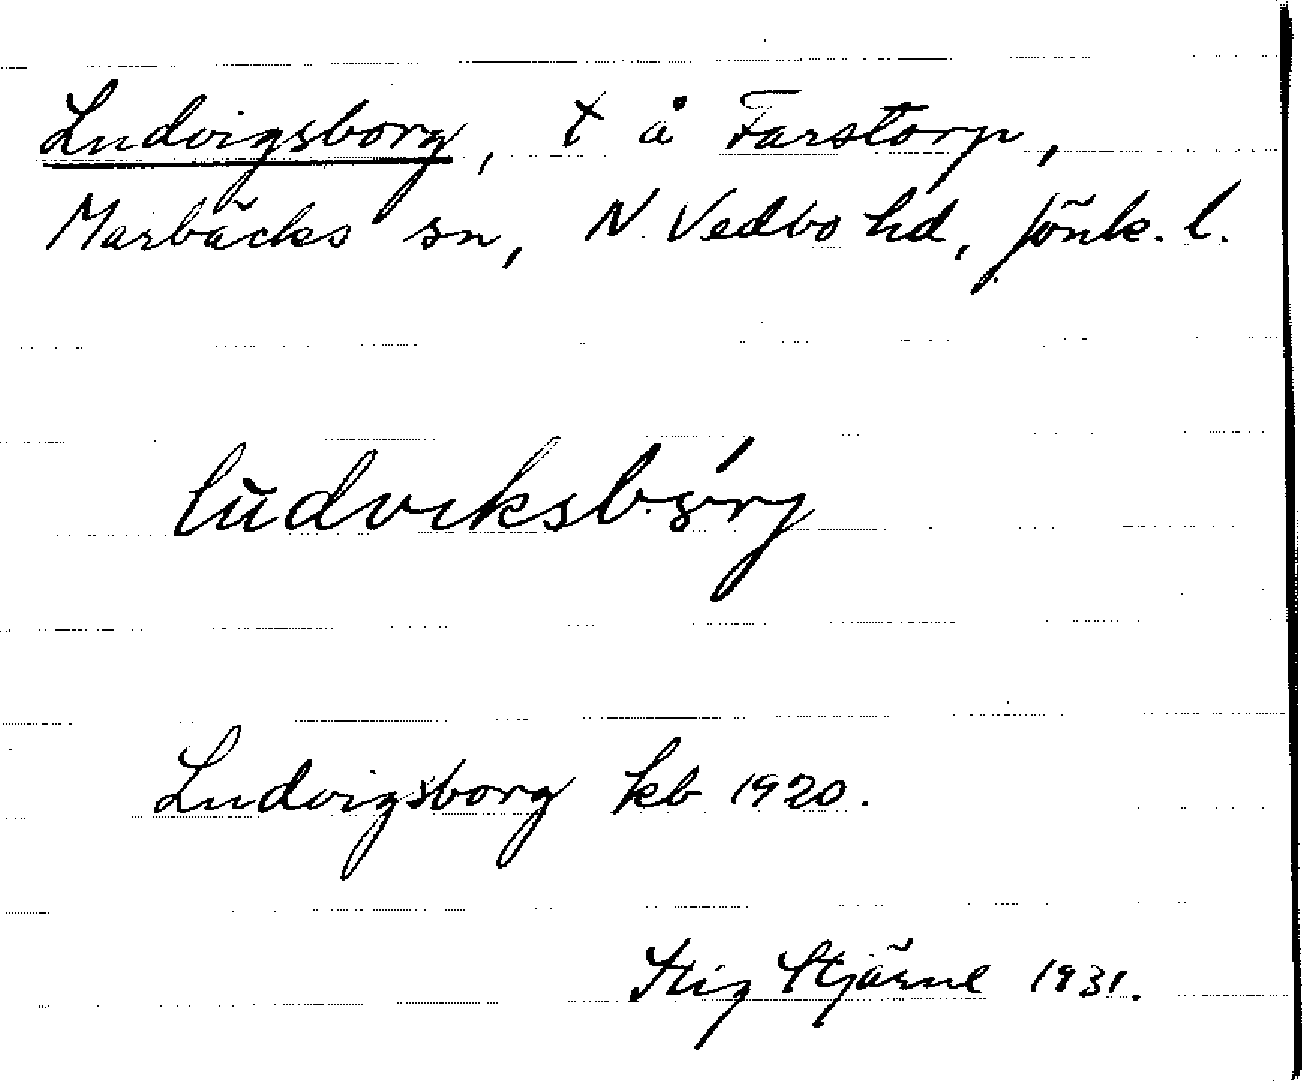 Ludvigsborg, t å Farstorp,
Marbäcks sn, N. Vedbo hd, Jönk. l.
ludviksbórj
Ludvigsborg kb 1920.
Stig Stjärne 1931.